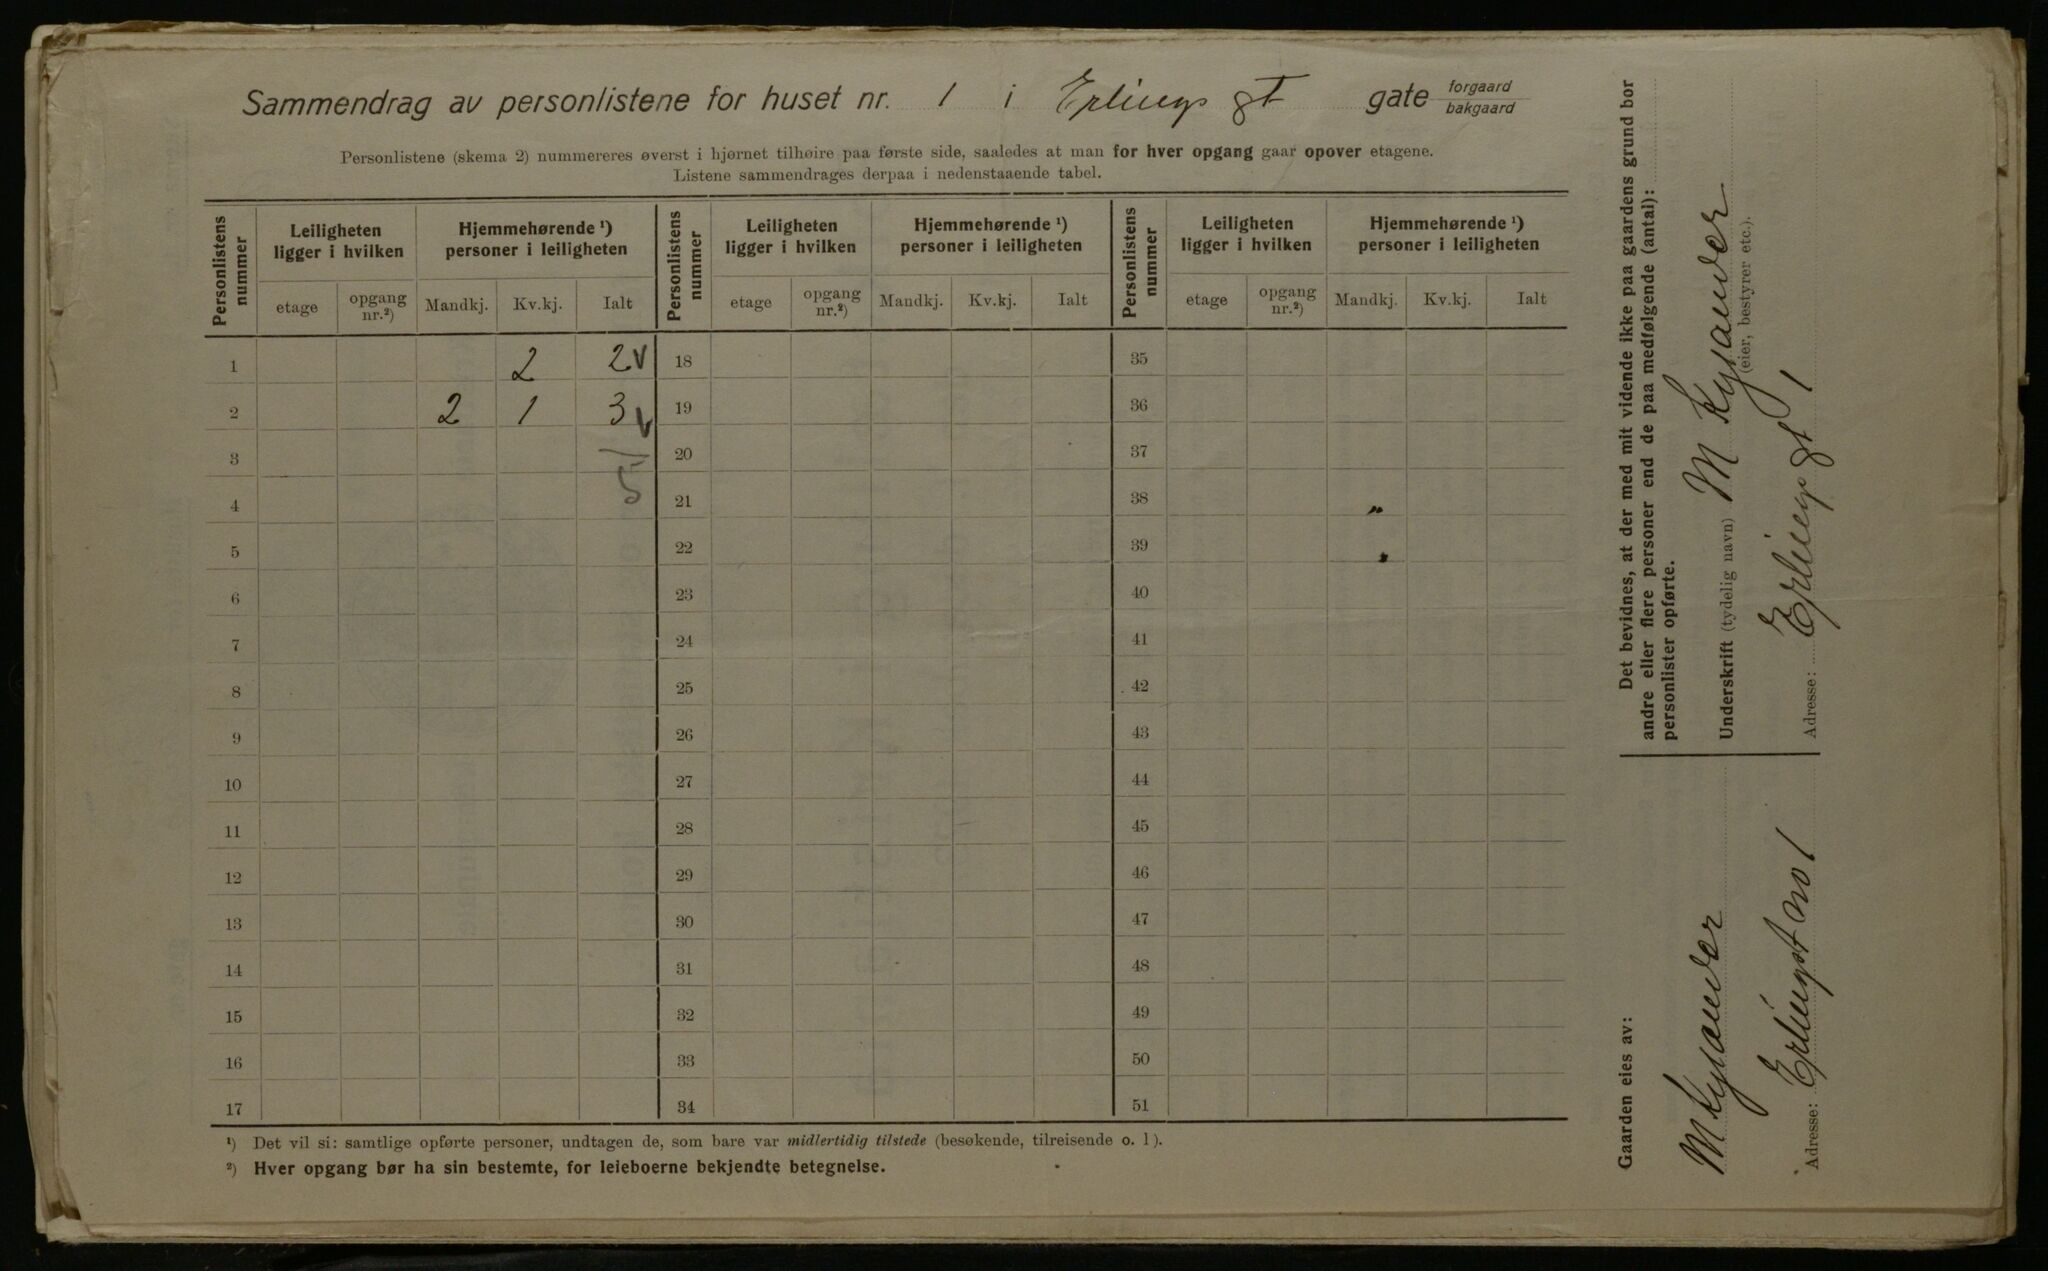 Sammendrag av personlistene for huset nr. 1 i Erlings gt gate forgaard
bakgaard
Personlistene (skema 2) nummereres øverst i hjørnet tilhøire paa første side, saaledes at man for hver opgang gaar opover etagene.
Listene sammendrages derpaa i nedenstaaende tabel.
Personlistens nummer | Leiligheten ligger i hvilken | Hjemmehørende ¹) personer i leiligheten | Personlistens nummer | Leiligheten ligger i hvilken | Hjemmehørende ¹) personer i leiligheten | Personlistens nummer | Leiligheten ligger i hvilken | Hjemmehørende ¹) personer i leiligheten
etage | opgang nr.²) | Mandkj. | Kv.kj. | Ialt | etage | opgang nr.²) | Mandkj. | Kv.kj. | Ialt | etage | opgang nr.²) | Mandkj. | Kv.kj. | Ialt
1 2 2 v 18 35
2 2 1 3 v 19 36
3 20 37
4 5 21 38 "
5 22 39
6 23 40
7 24 41
8 25 42
9 26 43
10 27 44
11 28 45
12 29 46
13 30 47
14 31 48
15 32 49
16 33 50
17 34 51
¹) Det vil si: samtlige opførte personer, undtagen de, som bare var midlertidig tilstede (besøkende, tilreisende o. l).
²) Hver opgang bør ha sin bestemte, for leieboerne bekjendte betegnelse.
Det bevidnes, at der med mit vidende ikke paa gaardens grund bor
andre eller flere personer end de paa medfølgende (antal):
personlister opførte.
Underskrift (tydelig navn) M Kysander
(eier, bestyrer etc.).
Adresse: Erlings gt 1
Gaarden eies av:
M Kysander
Adresse: Erlingsgt no 1